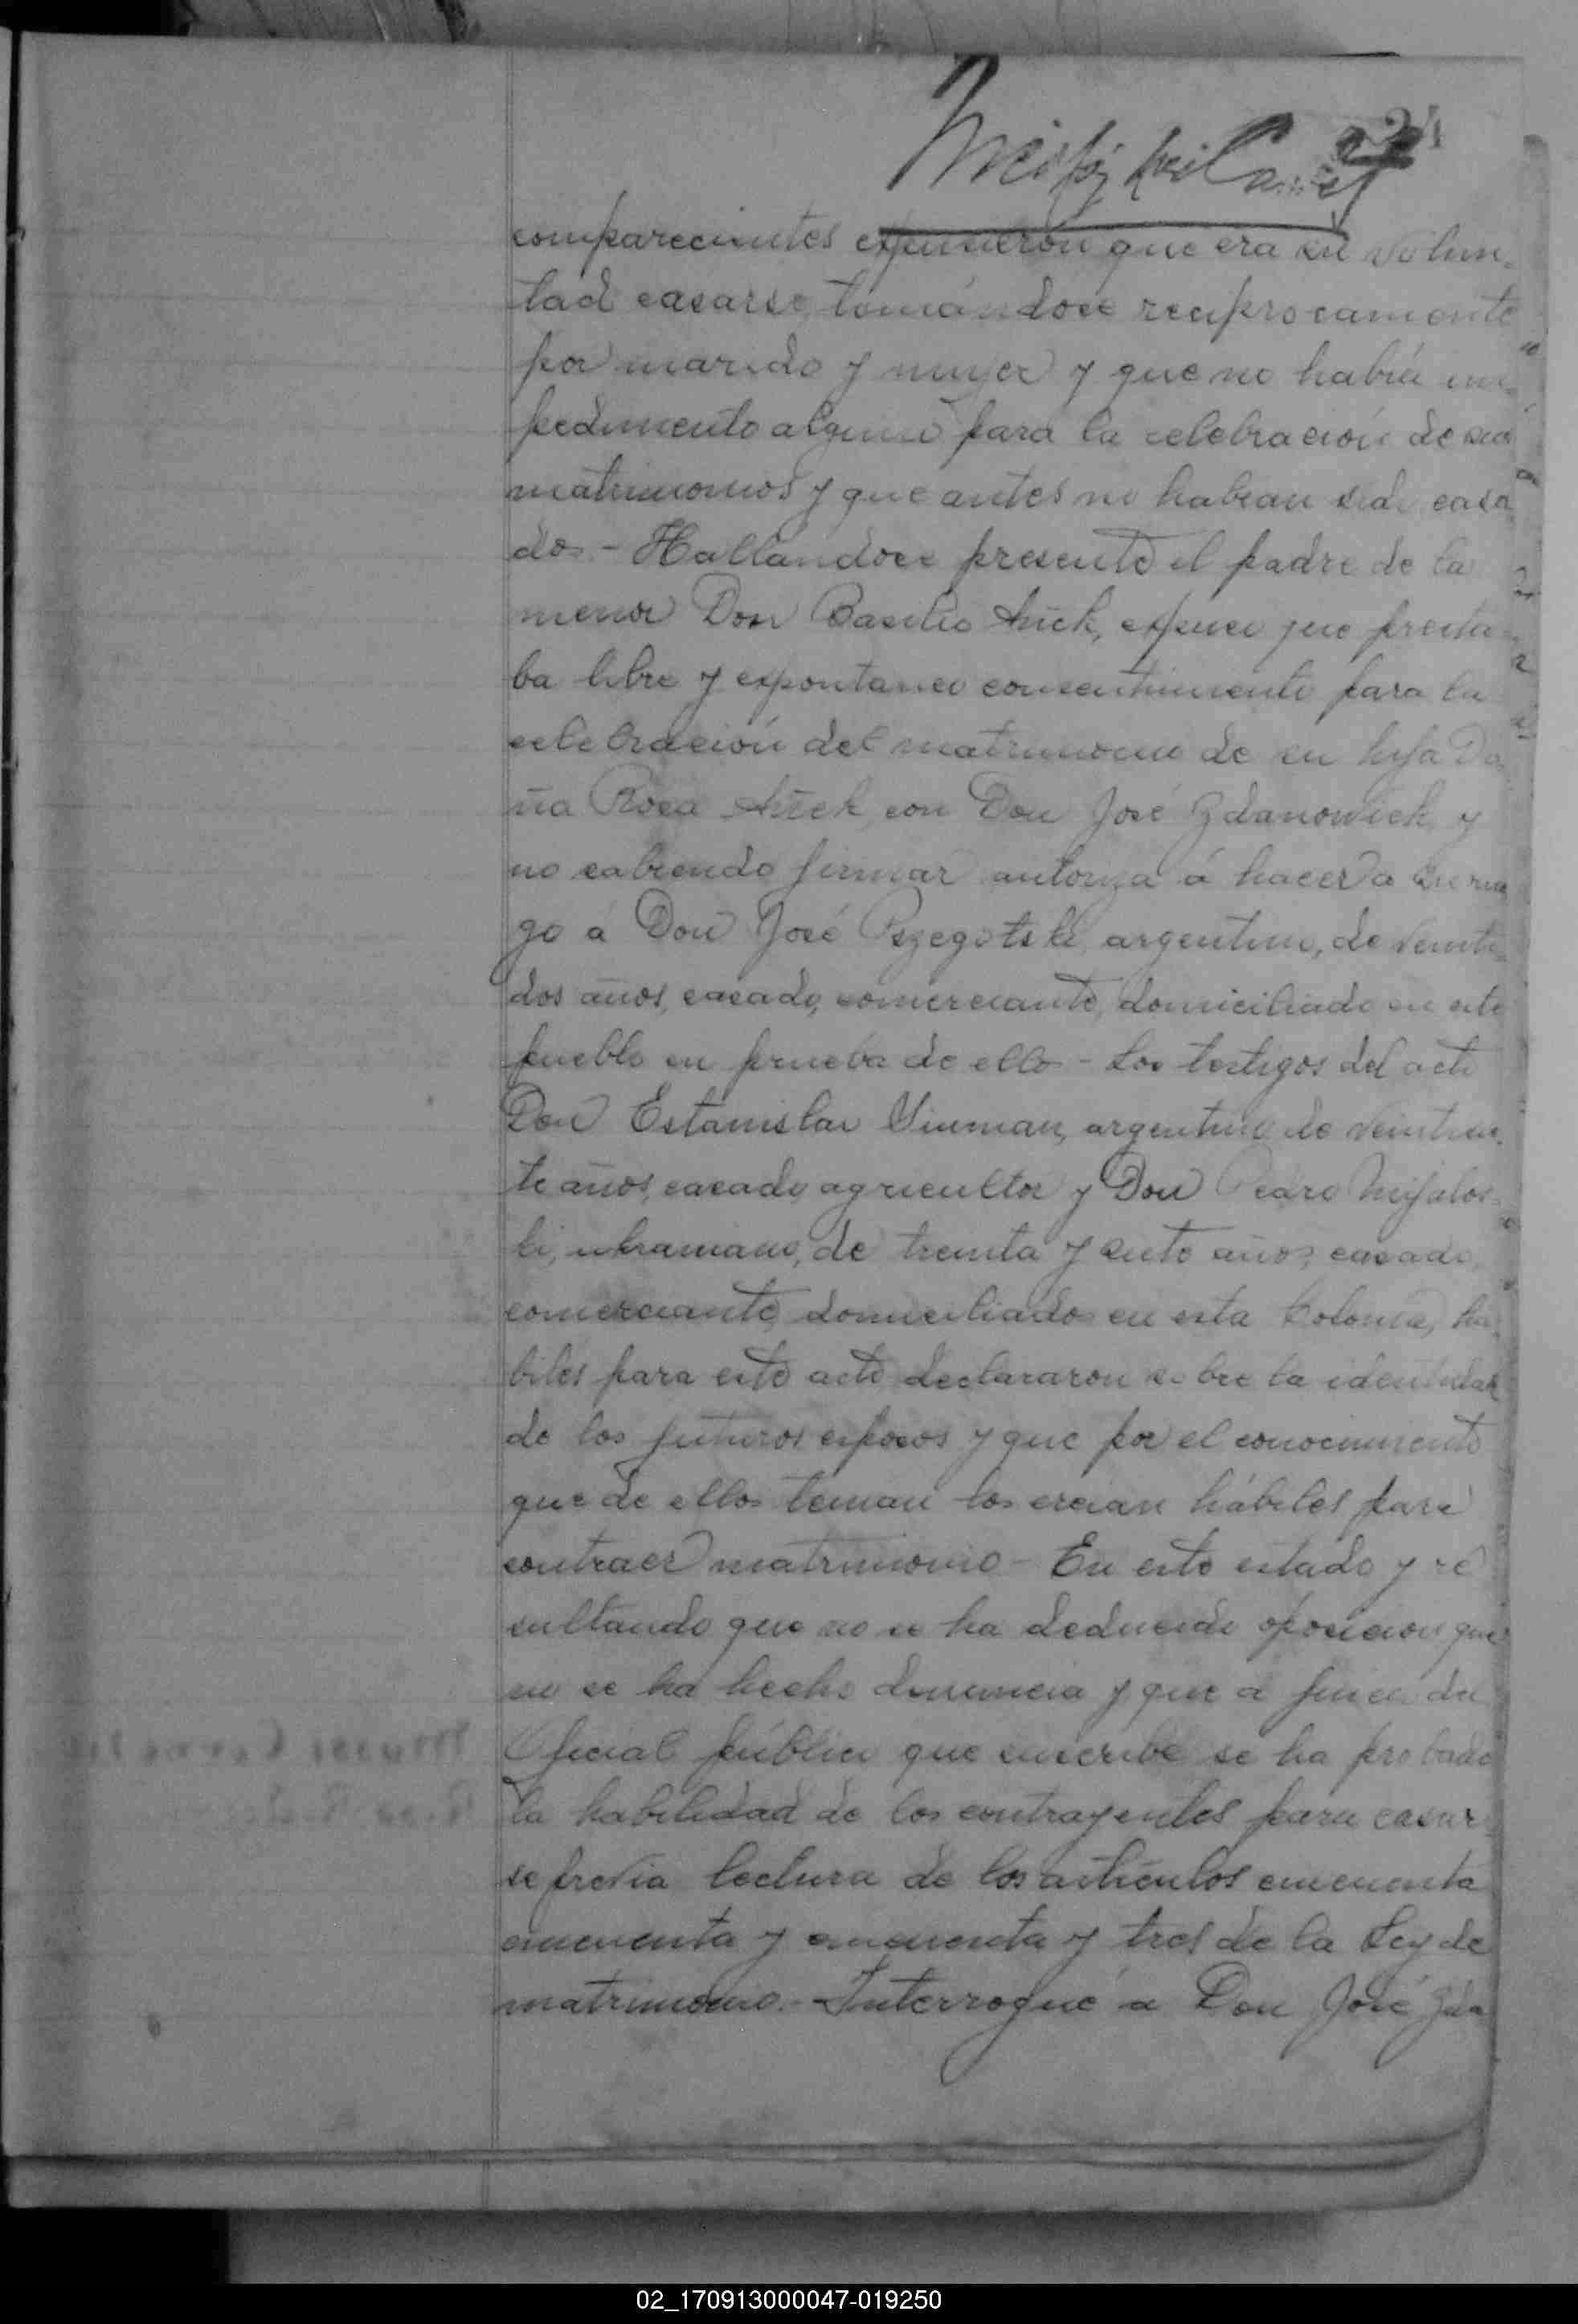 comparecientes expusieron que era su volun-
tad casarse, tomándose reciprocamente
por marido y mujer y que no había im-
pedimento alguno para la celebración de sus
matrimonios y que antes no habian sido casa
dos - Hallandose presente el padre de la
menor Don Basilio expuso que presta-
ba libre y espontaneo consentimiento para la
celebración del matrimonio de su hija Do
ña Rosa con Don José Zdanowich y
no sabiendo firmar autoriza á hacerlo a su rue
go á Don José argentino, de veinti
dos años, casado, comerciante, domiciliado en este
pueblo en prueba de ello - Los testigos del acto
Don Estanislao argentino de veintisie-
te años, casado agricultor y Don Pedro Mijalos-
ki, ukraniano, de treinta y siete años, casado,
comerciante, domiciliados en esta Colonia, ha-
biles para este acto declararon sobre la identidad
de los futuros esposos y que por el conocimiento
que de ellos tenian los creian hábiles para
contraer matrimonio - En este estado y re
sultando que no se ha deducido oposicion que
no se ha hecho denuncia y que a juicio del
Oficial público que suscribe se ha probado
la habilidad de los contrayentes para casar-
se previa lectura de los artículos cincuenta
cincuenta y cincuenta y tres de la Ley de
matrimonio. - Interrogué a Don José Zda
02_170913000047-019250